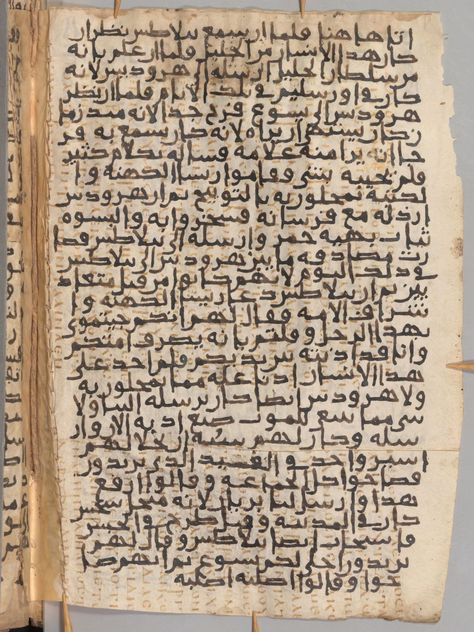 اتا هاهنا فلما ان سمع بيلاطس نظر ان
كان هدا الانسان من الجليل فلما ان علم بانه
من سلطان الجليل ارسله الى هرودس لانه
كان في اورسليم في تلك الايام فلما ان نظر
هرودس الى يسوع فرح جدا لانه منذ زما
ن كان يشتهي ان يراه لانه كان يسمع به فر
جا انه يرا منه علامه فساله بكلام كثير
فلم يجيبه شي وقاموا روسا الكهنه وا
لكتبه يمحلون به بالتوبيخ ثم ان هرودس
ازدله مع فرسانه فسخروا به والبسوه
ثياب بهيه حمر وارسله الى بيلاطس فصا
رت مصادقه ما بين هرودس الى بيلاطس
في ذلك اليوم لانهم كانوا من قبل متعاد
يين ثم ان بيلاطس دعا رييسا الكهنه وا
شراف الامه وقال لهم جيتموني
بهدا الرجل وقلتم بانه يصرف امتكم
وانا قد بين يديكم ولم اجد على
هدا الانسان ادنا عله مما تمحلون به
ولا هرودس ايضا كان يرسله الينا ولا
شي مما للموت صنع ادبه الان وار
سله وكان لهم سنة ان يخلا لهم
اسير واحد في الذي يريدون
فصاحوا كل الجماعه وقالوا ارفع
هدا وارسل لنا بربان لانه من اجل سجس
كان في المدينه وقتل طرح في الحبس
فاستجاب ايضا بيلاطس وقال لهم
يريدون اخلي لكم يسوع ثم انهم صا
حوا وقالوا اصلبه اصلبه